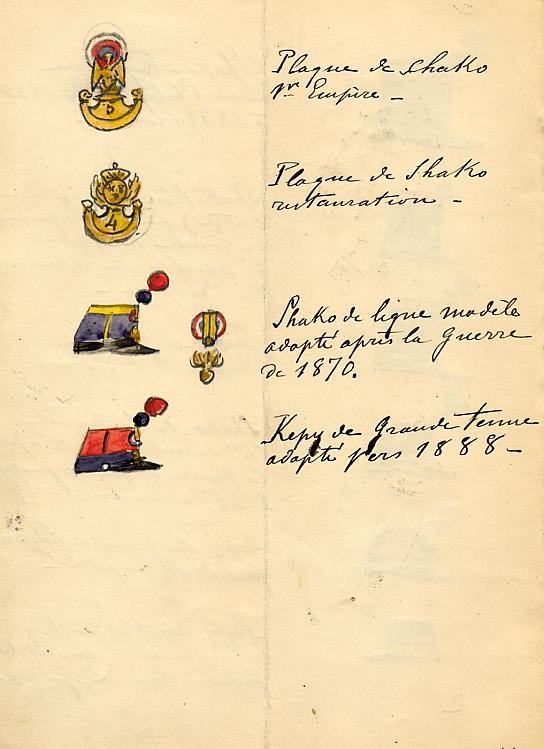 5
Plaque de shako
1er Empire -
4
Plaque de Shako
restauration -
Shako de ligne modèle
adopté après la Guerre
de 1870.
Kepy de Grande tenue
adopté vers 1888 -